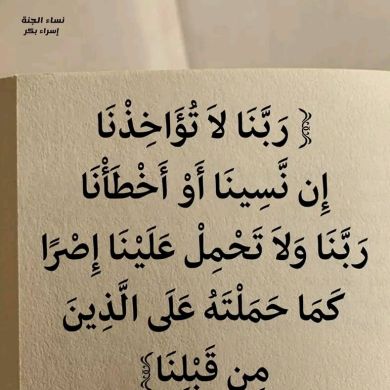 نساء الجنة
إسراء بكر
﴿ رَبَّنَا لاَ تُؤَاخِذْنَا
إِن نَّسِينَا أَوْ أَخْطَأْنَا
رَبَّنَا وَلاَ تَحْمِلْ عَلَيْنَا إِصْرًا
كَمَا حَمَلْتَهُ عَلَى الَّذِينَ
مِن قَبْلِنَا ﴾